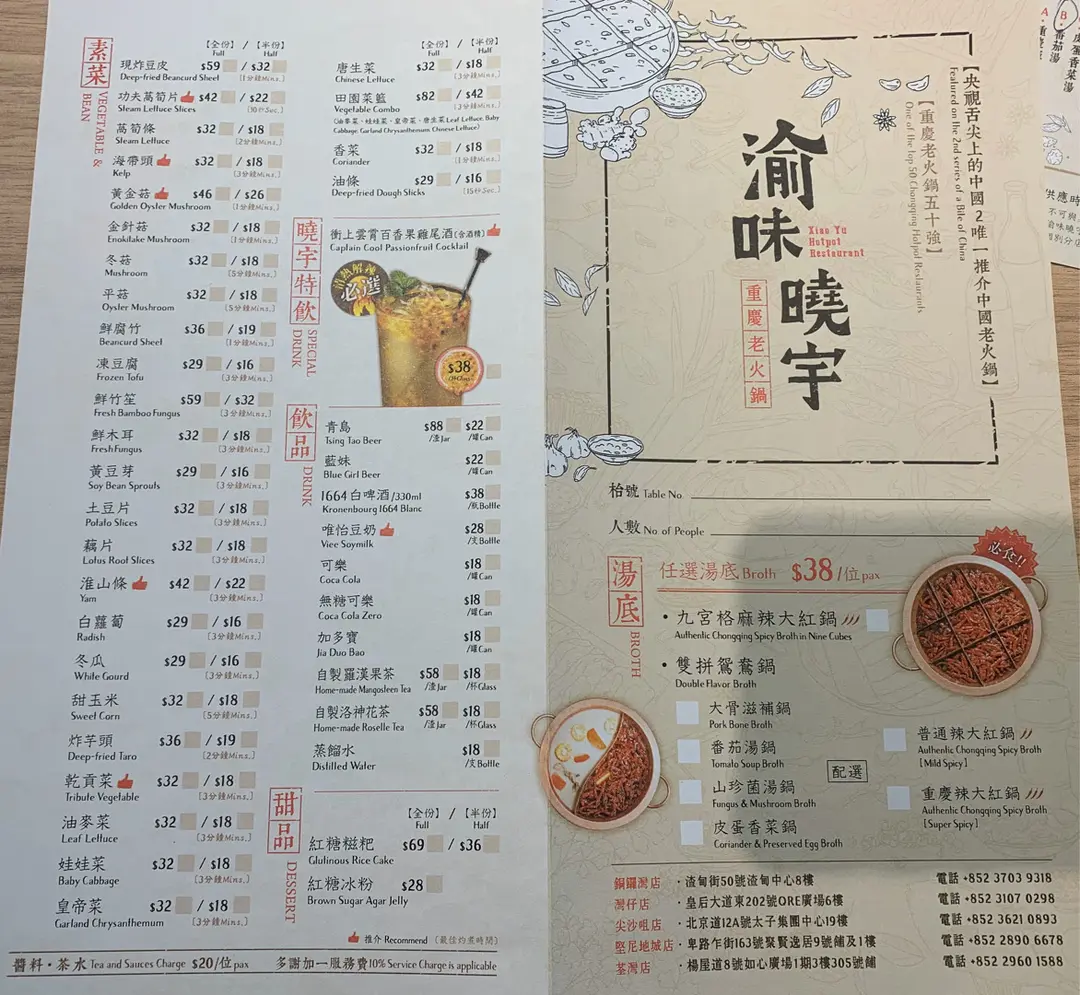 素菜
VEGETABLE & BEAN
【全份】 / 【半份】
Full Half
現炸豆皮 $59 / $32
Deep-fried Beancurd Sheet [1分鐘Mins.]
功夫萵筍片 $42 / $22
Stem Lettuce Slices [10秒Sec.]
萵筍條 $32 / $18
Stem Lettuce [2分鐘Mins.]
海帶頭 $32 / $18
Kelp [3分鐘Mins.]
黃金菇 $46 / $26
Golden Oyster Mushroom [1分鐘Mins.]
金針菇 $32 / $18
Enokitake Mushroom [1分鐘Mins.]
冬菇 $32 / $18
Mushroom [5分鐘Mins.]
平菇 $32 / $18
Oyster Mushroom [5分鐘Mins.]
鮮腐竹 $36 / $19
Beancurd Sheet [1分鐘Mins.]
凍豆腐 $29 / $16
Frozen Tofu [3分鐘Mins.]
鮮竹笙 $59 / $32
Fresh Bamboo Fungus [3分鐘Mins.]
鮮木耳 $32 / $18
Fresh Fungus [3分鐘Mins.]
黃豆芽 $29 / $16
Soy Bean Sprouts [3分鐘Mins.]
土豆片 $32 / $18
Potato Slices [3分鐘Mins.]
藕片 $32 / $18
Lotus Root Slices [3分鐘Mins.]
淮山條 $42 / $22
Yam [3分鐘Mins.]
白蘿蔔 $29 / $16
Radish [3分鐘Mins.]
冬瓜 $29 / $16
White Gourd [3分鐘Mins.]
甜玉米 $32 / $18
Sweet Corn [5分鐘Mins.]
炸芋頭 $36 / $19
Deep-fried Taro [2分鐘Mins.]
乾貢菜 $32 / $18
Tribute Vegetable [3分鐘Mins.]
油麥菜 $32 / $18
Leaf Lettuce [3分鐘Mins.]
娃娃菜 $32 / $18
Baby Cabbage [3分鐘Mins.]
皇帝菜 $32 / $18
Garland Chrysanthemum [3分鐘Mins.]
【全份】 / 【半份】
Full Half
唐生菜 $32 / $18
Chinese Lettuce [3分鐘Mins.]
田園菜籃 $82 / $42
Vegetable Combo [3分鐘Mins.]
(油麥菜、娃娃菜、皇帝菜、唐生菜 Leaf Lettuce, Baby
Cabbage, Garland Chrysanthemum, Chinese Lettuce)
香菜 $32 / $18
Coriander [1分鐘Mins.]
油條 $29 / $16
Deep-fried Dough Sticks [15秒Sec.]
曉宇特飲
SPECIAL DRINK
衝上雲霄百香果雞尾酒(含酒精)
Captain Cool Passionfruit Cocktail
清熱解辣
必選
$38
/杯Glass
飲品
DRINK
青島 $88 $22
Tsing Tao Beer /渣Jar /罐Can
藍妹 $22
Blue Girl Beer /罐Can
1664白啤酒/330ml $38
Kronenbourg 1664 Blanc /瓶Bottle
唯怡豆奶 $28
Viee Soymilk /支Bottle
可樂 $18
Coca Cola /罐Can
無糖可樂 $18
Coca Cola Zero /罐Can
加多寶 $18
Jia Duo Bao /罐Can
自製羅漢果茶 $58 $18
Home-made Mangosteen Tea /渣Jar /杯Glass
自製洛神花茶 $58 $18
Home-made Roselle Tea /渣Jar /杯Glass
蒸餾水 $18
Distilled Water /支Bottle
甜品
DESSERT
【全份】 / 【半份】
Full Half
紅糖糍粑 $69 / $36
Glutinous Rice Cake
紅糖冰粉 $28
Brown Sugar Agar Jelly
推介 Recommend (最佳灼煮時間)
醬料・茶水 Tea and Sauces Charge $20/位pax 多謝加一服務費10% Service Charge is applicable
【央視舌尖上的中國2唯一推介中國老火鍋】
Featured on the 2nd series of A Bite of China
【重慶老火鍋五十強】
One of the top 50 Chongqing Hotpot Restaurants
渝味曉宇
Xiao Yu
Hotpot
Restaurant
重慶老火鍋
枱號 Table No.
人數 No of People
湯底
BROTH
任選湯底 Broth $38/位pax
必食!!
・九宮格麻辣大紅鍋
Authentic Chongqing Spicy Broth in Nine Cubes
・雙拼鴛鴦鍋
Double Flavor Broth
大骨滋補鍋
Pork Bone Broth
番茄湯鍋
Tomato Soup Broth
山珍菌湯鍋
Fungus & Mushroom Broth
皮蛋香菜鍋
Coriander & Preserved Egg Broth
配選
普通辣大紅鍋
Authentic Chongqing Spicy Broth
[Mild Spicy]
重慶辣大紅鍋
Authentic Chongqing Spicy Broth
[Super Spicy]
銅鑼灣店 ・渣甸街50號渣甸中心8樓 電話 +852 3703 9318
灣仔店 ・皇后大道東202號QRE廣場6樓 電話 +852 3107 0298
尖沙咀店 ・北京道12A號太子集團中心19樓 電話 +852 3621 0893
堅尼地城店 ・卑路乍街163號聚賢逸居9號舖及1樓 電話 +852 2890 6678
荃灣店 ・楊屋道8號如心廣場1期3樓305號舖 電話 +852 2960 1588
A・重慶
B・番茄湯
皮蛋香菜湯
供應時
不可與